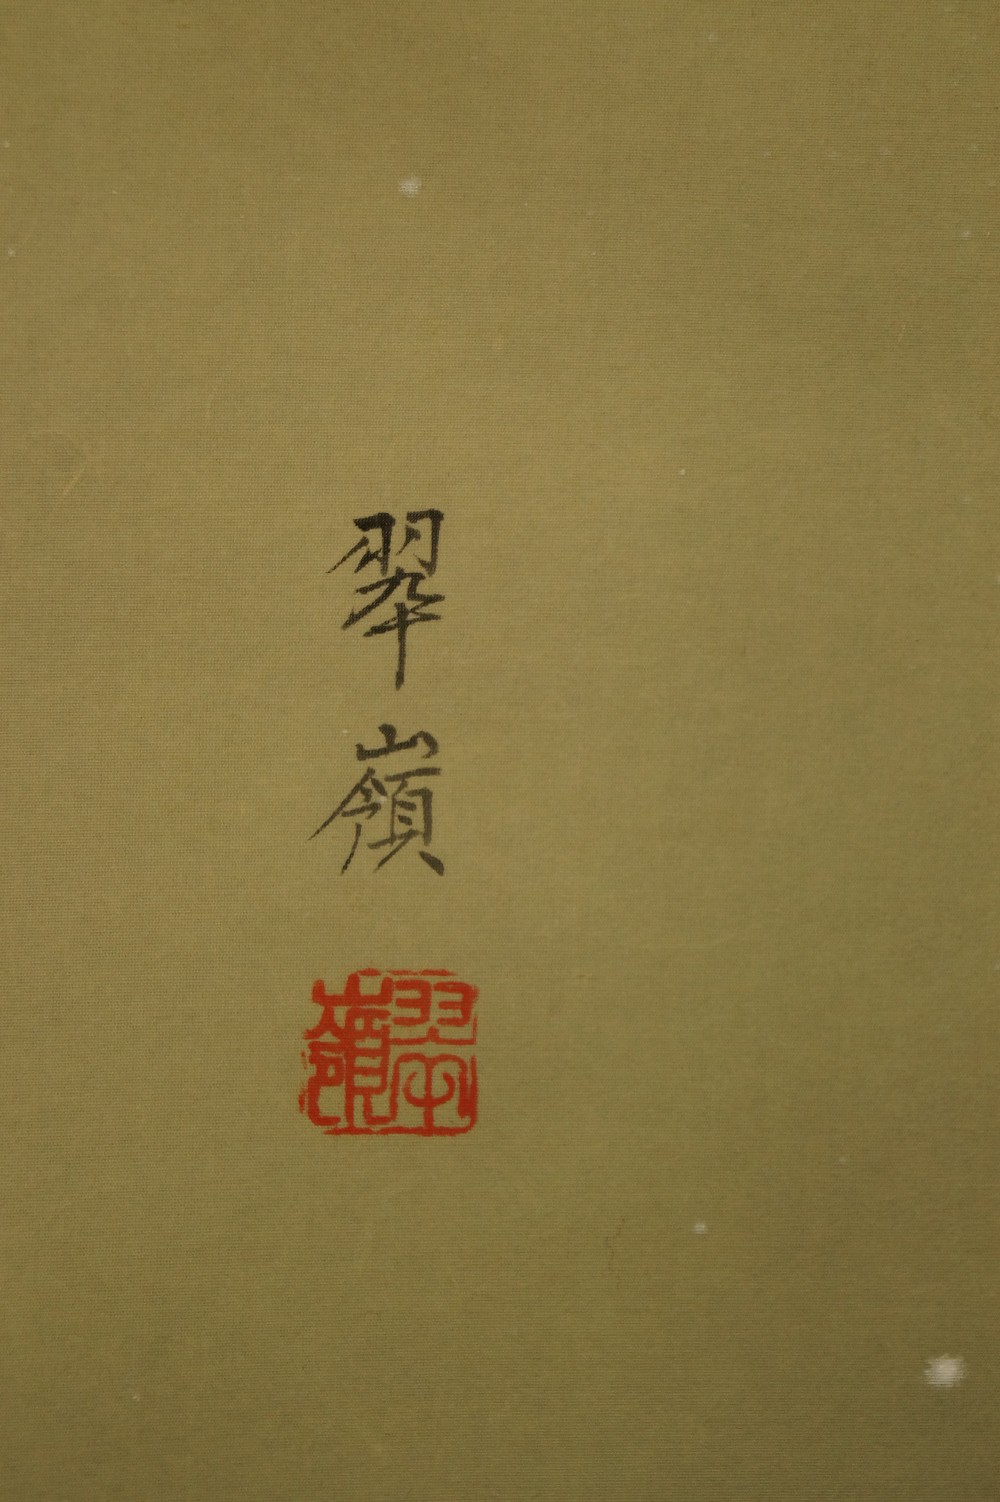 翠嶺
翠嶺